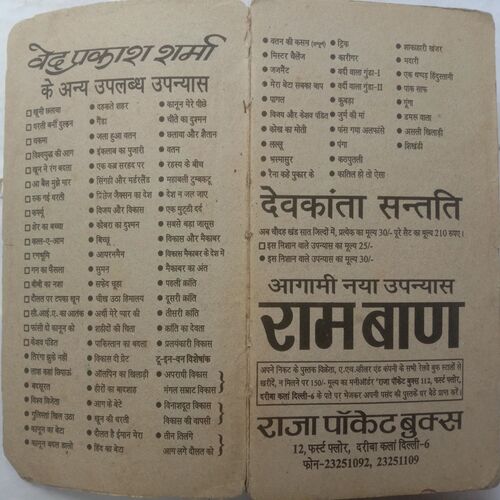 वेद प्रकाश शर्मा
के अन्य उपलब्ध उपन्यास
□ खूनी छलावा
□ धरती बनी दुल्हन
□ चकमा
□ विश्वयुद्ध की आग
□ खून ने रंग बदला
□ आ बैल मुझे मार
□ रुक गई धरती
□ कर्फ्यू
□ शेर का बच्चा
□ कत्ल-ए-आम
□ रणभूमि
□ गन का फैसला
□ बीबी का नशा
□ दौलत पर टपका खून
□ सी.आई.ए. का आतंक
□ फांसी दो कानून को
□ केशव पंडित
● तिरंगा झुके नहीं
● लाश कहां छिपाऊं
● बदसूरत
● विश्व विजेता
● गुलिस्तां खिल उठा
● कानून का बेटा
● कानून बदल डालो
● दहकते शहर
● गैंडा
● जला हुआ वतन
● इंकलाब का पुजारी
● एक कब्र सरहद पर
● सिंगही और मर्डरलैंड
● प्रिंसेज जैक्सन का देश
● विजय और विकास
● कोबरा का दुश्मन
● बिच्छू
● आयरनमैन
● सुमन
● सफेद चूहा
● चीख उठा हिमालय
● अर्थी मेरे प्यार की
● शहीदों की चिता
● पाकिस्तान का बदला
● विकास दी ग्रेट
● ऑलपिन का खिलाड़ी
● हीरों का बादशाह
● आग के बेटे
● खून की धरती
● दौलत है ईमान मेरा
● हिंद का बेटा
● कानून मेरे पीछे
● चीते का दुश्मन
● छलावा और शैतान
● वतन
● रहस्य के बीच
● महाबली टुम्बकटू
● देश न जल जाए
● एक मुट्ठी दर्द
● सबसे बड़ा जासूस
● विकास और मैकाबर
● विकास मैकाबर के देश में
● मैकाबर का अंत
● पहली क्रांति
● दूसरी क्रांति
● तीसरी क्रांति
● क्रांति का देवता
● प्रलयंकारी विकास
टू-इन-वन विशेषांक
● अपराधी विकास
मंगल सम्राट विकास
● विनाशदूत विकास
विकास की वापसी
● तीन तिलंगे
आग लगे दौलत को
● वतन की कसम (सम्पूर्ण)
● मिस्टर चैलेंज
● जजमैंट
● मेरा बेटा सबका बाप
● पागल
● विजय और केशव पंडित
● कोख का मोती
● लल्लू
● भस्मासुर
● रैना कहे पुकार के
● ट्रिक
● कारीगर
● वर्दी वाला गुंडा-I
● वर्दी वाला गुंडा-II
● कुबड़ा
● जुर्म की मां
● फंस गया अलफांसे
● पंगा
● कठपुतली
● कातिल हो तो ऐसा
● शाकाहारी खंजर
● मदारी
● एक थप्पड़ हिंदुस्तानी
● पाक साफ
● गूंगा
● डमरू वाला
● असली खिलाड़ी
● शिखंडी
देवकांता सन्तति
अब चौदह खंड सात जिल्दों में, प्रत्येक का मूल्य 30/- पूरे सैट का मूल्य 210 रुपए।
□ इस निशान वाले उपन्यास का मूल्य 25/-
● इस निशान वाले उपन्यास का मूल्य 30/-
आगामी नया उपन्यास
राम बाण
अपने निकट के पुस्तक विक्रेता, ए.एच.व्हीलर एंड कंपनी के सभी रेलवे बुक स्टालों से
खरीदें, न मिलने पर 150/- मूल्य का मनीऑर्डर 'राजा पॉकेट बुक्स 112, फर्स्ट फ्लोर,
दरीबा कलां दिल्ली-6 के पते पर भेजकर अपनी पसंद की पुस्तकें घर बैठे प्राप्त करें।
राजा पॉकेट बुक्स
12, फर्स्ट फ्लोर, दरीबा कला दिल्ली-6
फोन-23251092, 23251109